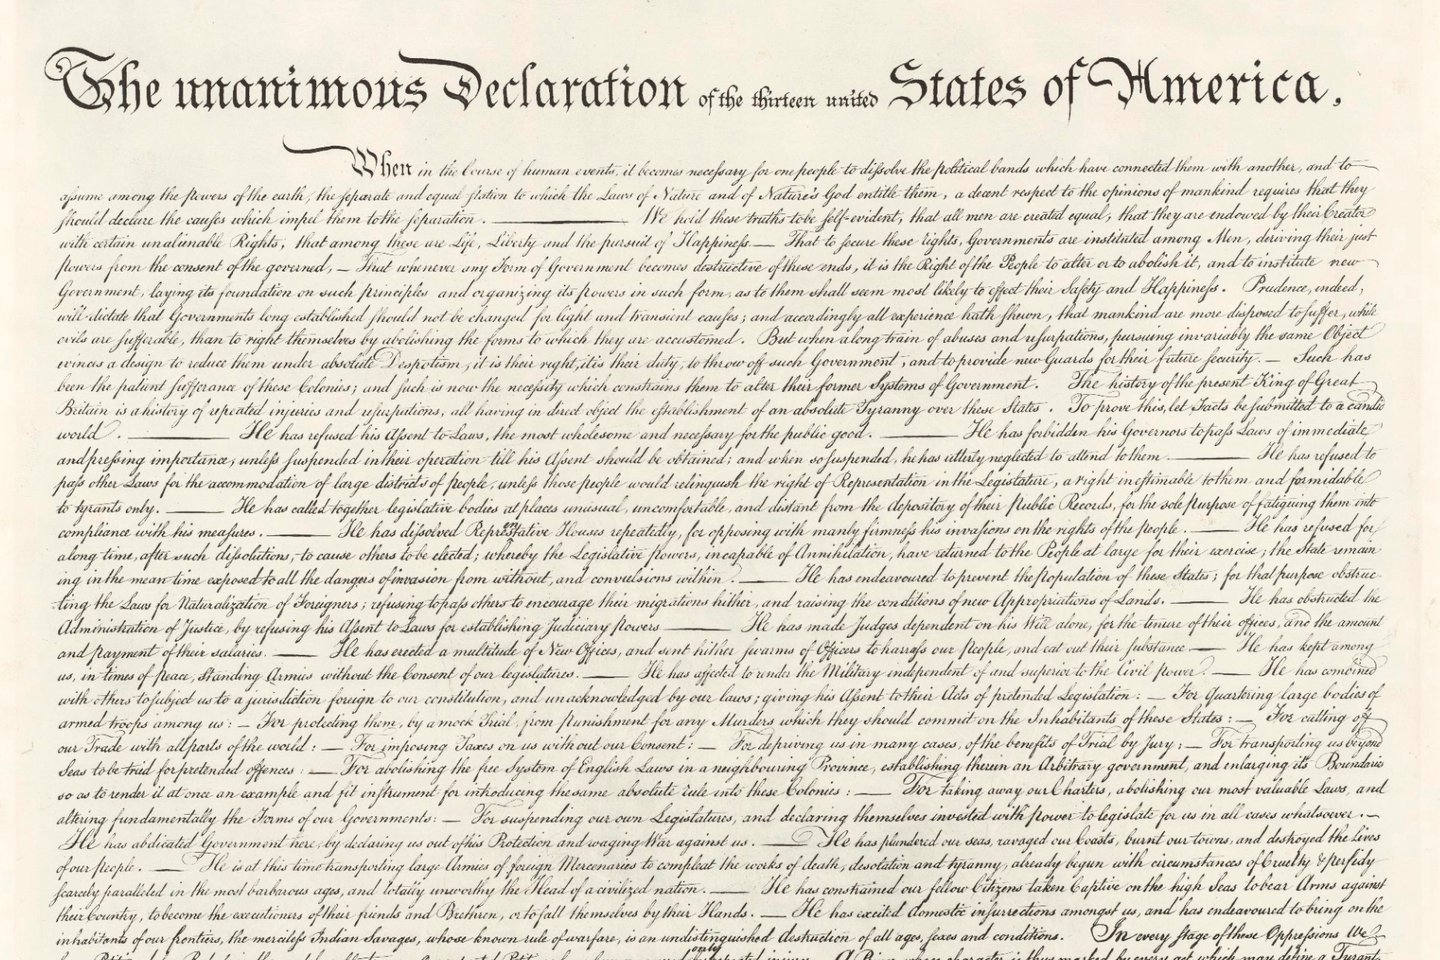 The unanimous Declaration of the thirteen united States of America,
When in the Course of human events, it becomes necessary for one people to dissolve the political bands which have connected them with another, and to
assume among the powers of the earth, the separate and equal station to which the Laws of Nature and of Nature's God entitle them, a decent respect to the opinions of mankind requires that they
should declare the causes which impel them to the separation. We hold these truths to be self-evident, that all men are created equal, that they are endowed by their Creator
with certain unalienable Rights, that among these are Life, Liberty and the pursuit of Happiness.— That to secure these rights, Governments are instituted among Men, deriving their just
powers from the consent of the governed, — That whenever any Form of Government becomes destructive of these ends, it is the Right of the People to alter or to abolish it, and to institute new
Government, laying its foundation on such principles and organizing its powers in such form, as to them shall seem most likely to effect their Safety and Happiness. Prudence, indeed,
will dictate that Governments long established should not be changed for light and transient causes; and accordingly all experience hath shewn, that mankind are more disposed to suffer, while
evils are sufferable, than to right themselves by abolishing the forms to which they are accustomed. But when a long train of abuses and usurpations, pursuing invariably the same Object
evinces a design to reduce them under absolute Despotism, it is their right, it is their duty, to throw off such Government, and to provide new Guards for their future security. — Such has
been the patient sufferance of these Colonies; and such is now the necessity which constrains them to alter their former Systems of Government. The history of the present King of Great
Britain is a history of repeated injuries and usurpations, all having in direct object the establishment of an absolute Tyranny over these States. To prove this, let Facts be submitted to a candid
world. — He has refused his Assent to Laws, the most wholesome and necessary for the public good. — He has forbidden his Governors to pass Laws of immediate
and pressing importance, unless suspended in their operation till his Assent should be obtained; and when so suspended, he has utterly neglected to attend to them. — He has refused to
pass other Laws for the accommodation of large districts of people, unless those people would relinquish the right of Representation in the Legislature, a right inestimable to them and formidable
to tyrants only. — He has called together legislative bodies at places unusual, uncomfortable, and distant from the depository of their Public Records, for the sole purpose of fatiguing them into
compliance with his measures. — He has dissolved Representative Houses repeatedly, for opposing with manly firmness his invasions on the rights of the people. — He has refused for
a long time, after such dissolutions, to cause others to be elected; whereby the Legislative powers, incapable of Annihilation, have returned to the People at large for their exercise; the State remain
ing in the mean time exposed to all the dangers of invasion from without, and convulsions within. — He has endeavoured to prevent the population of these States; for that purpose obstruc-
ting the Laws for Naturalization of Foreigners; refusing to pass others to encourage their migrations hither, and raising the conditions of new Appropriations of Lands. — He has obstructed the
Administration of Justice, by refusing his Assent to Laws for establishing Judiciary powers — He has made Judges dependent on his Will alone, for the tenure of their offices, and the amount
and payment of their salaries. — He has erected a multitude of New Offices, and sent hither swarms of Officers to harrass our people, and eat out their substance — He has kept among
us, in times of peace, Standing Armies without the Consent of our legislatures. — He has affected to render the Military independent of and superior to the Civil power. — He has combined
with others to subject us to a jurisdiction foreign to our constitution, and unacknowledged by our laws; giving his Assent to their Acts of pretended Legislation: — For Quartering large bodies of
armed troops among us: — For protecting them, by a mock Trial, from punishment for any Murders which they should commit on the Inhabitants of these States: — For cutting off
our Trade with all parts of the world: — For imposing Taxes on us without our Consent: — For depriving us in many cases, of the benefits of Trial by Jury; — For transporting us beyond
Seas to be tried for pretended offences: — For abolishing the free System of English Laws in a neighbouring Province, establishing therein an Arbitrary government, and enlarging its Boundaries
so as to render it at once an example and fit instrument for introducing the same absolute rule into these Colonies: — For taking away our Charters, abolishing our most valuable Laws, and
altering fundamentally the Forms of our Governments: — For suspending our own Legislatures, and declaring themselves invested with power to legislate for us in all cases whatsoever. —
He has abdicated Government here, by declaring us out of his Protection and waging War against us. — He has plundered our seas, ravaged our Coasts, burnt our towns, and destroyed the Lives
of our people. — He is at this time transporting large Armies of foreign Mercenaries to compleat the works of death, desolation and tyranny, already begun with circumstances of Cruelty & perfidy
scarcely paralleled in the most barbarous ages, and totally unworthy the Head of a civilized nation. — He has constrained our fellow Citizens taken Captive on the high Seas to bear Arms against
their Country, to become the executioners of their friends and Brethren, or to fall themselves by their Hands. — He has excited domestic insurrections amongst us, and has endeavoured to bring on the
inhabitants of our frontiers, the merciless Indian Savages, whose known rule of warfare, is an undistinguished destruction of all ages, sexes and conditions. In every stage of these Oppressions We
only
A Prince whose character is thus marked by every act which may define a Tyrant